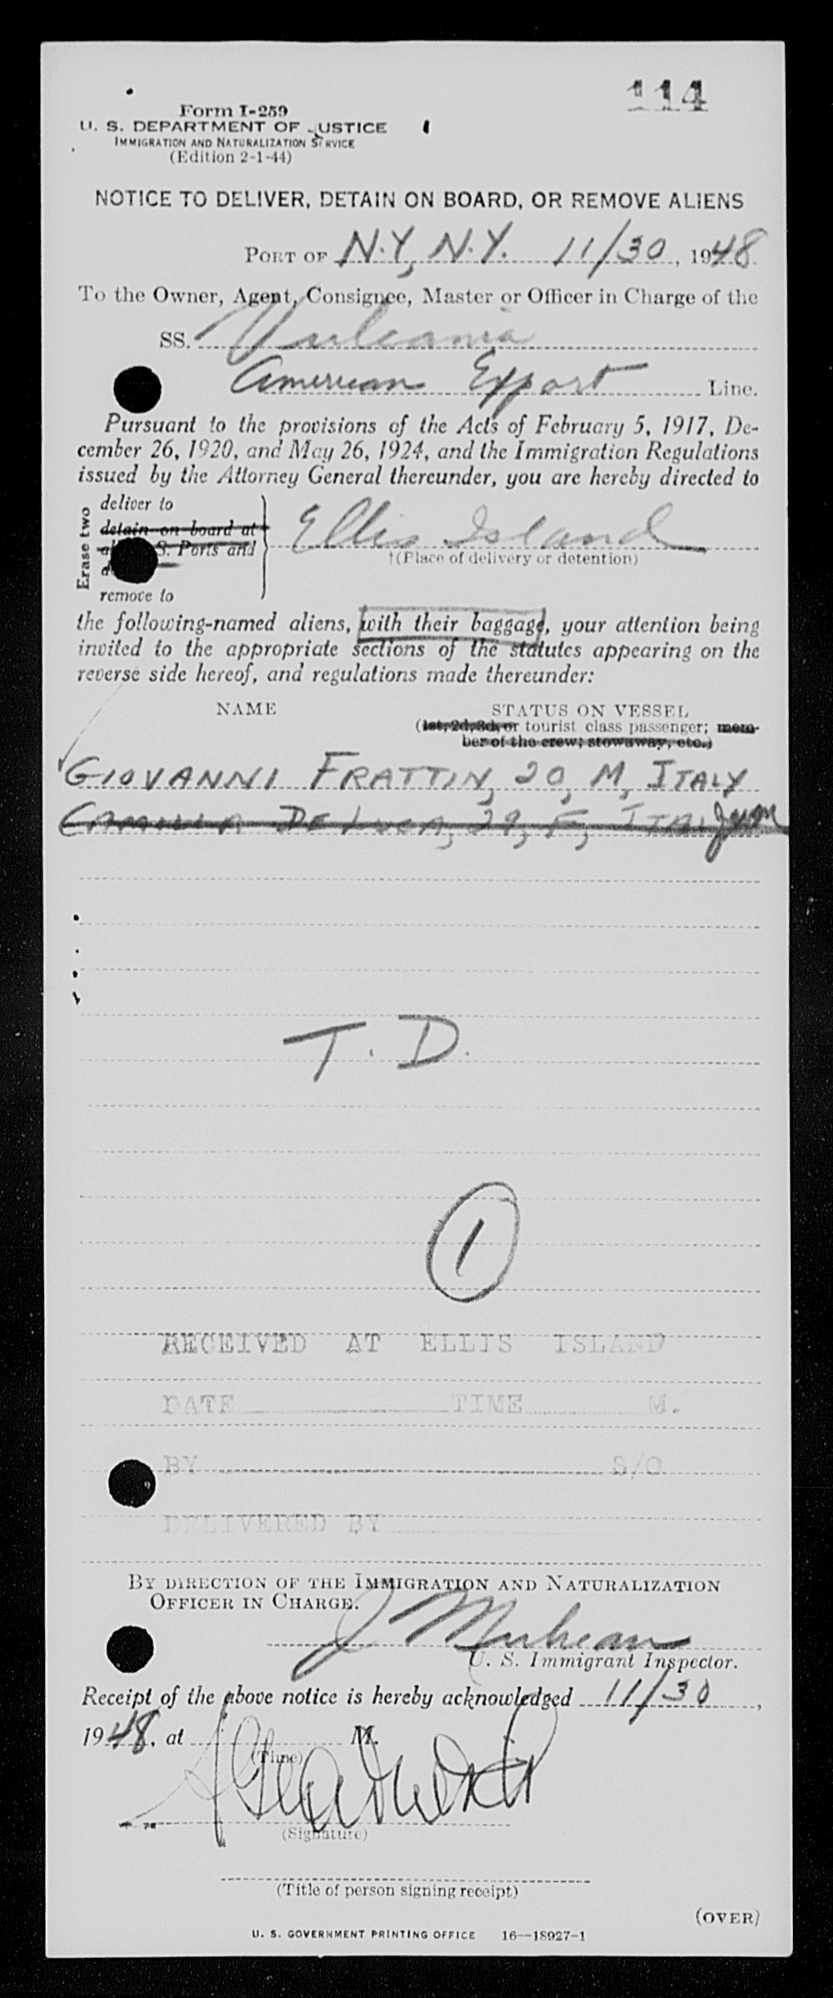 114
Form I-259
U. S. DEPARTMENT OF JUSTICE
IMMIGRATION AND NATURALIZATION SERVICE
(Edition 2-1-44)
NOTICE TO DELIVER, DETAIN ON BOARD, OR REMOVE ALIENS
PORT OF N.Y, N.Y. 11/30, 1948
To the Owner, Agent, Consignee, Master or Officer in Charge of the
SS. Vulcania
American Export Line.
Pursuant to the provisions of the Acts of February 5, 1917, De-
cember 26, 1920, and May 26, 1924, and the Immigration Regulations
issued by the Attorney General thereunder, you are hereby directed to
Erase two
deliver to
detain on board at
S. Ports and
remove to
Ellis Island
†(Place of delivery or detention)
the following-named aliens, with their baggage, your attention being
invited to the appropriate sections of the statutes appearing on the
reverse side hereof, and regulations made thereunder:
NAME STATUS ON VESSEL
(1st, 2d, 3d, or tourist class passenger; mem-
ber of the crew; stowaway, etc.)
GIOVANNI FRATTIN, 20, M, ITALY
CAMILLA DE LUCA, 29, F, ITALY
T. D.
1
RECEIVED AT ELLIS ISLAND
DATE TIME M.
BY S/O
DELIVERED BY
BY DIRECTION OF THE IMMIGRATION AND NATURALIZATION
OFFICER IN CHARGE.
U. S. Immigrant Inspector.
Receipt of the above notice is hereby acknowledged 11/30,
1948, at M.
(Time)
(Signature)
(Title of person signing receipt)
(OVER)
U. S. GOVERNMENT PRINTING OFFICE 16—18927-1